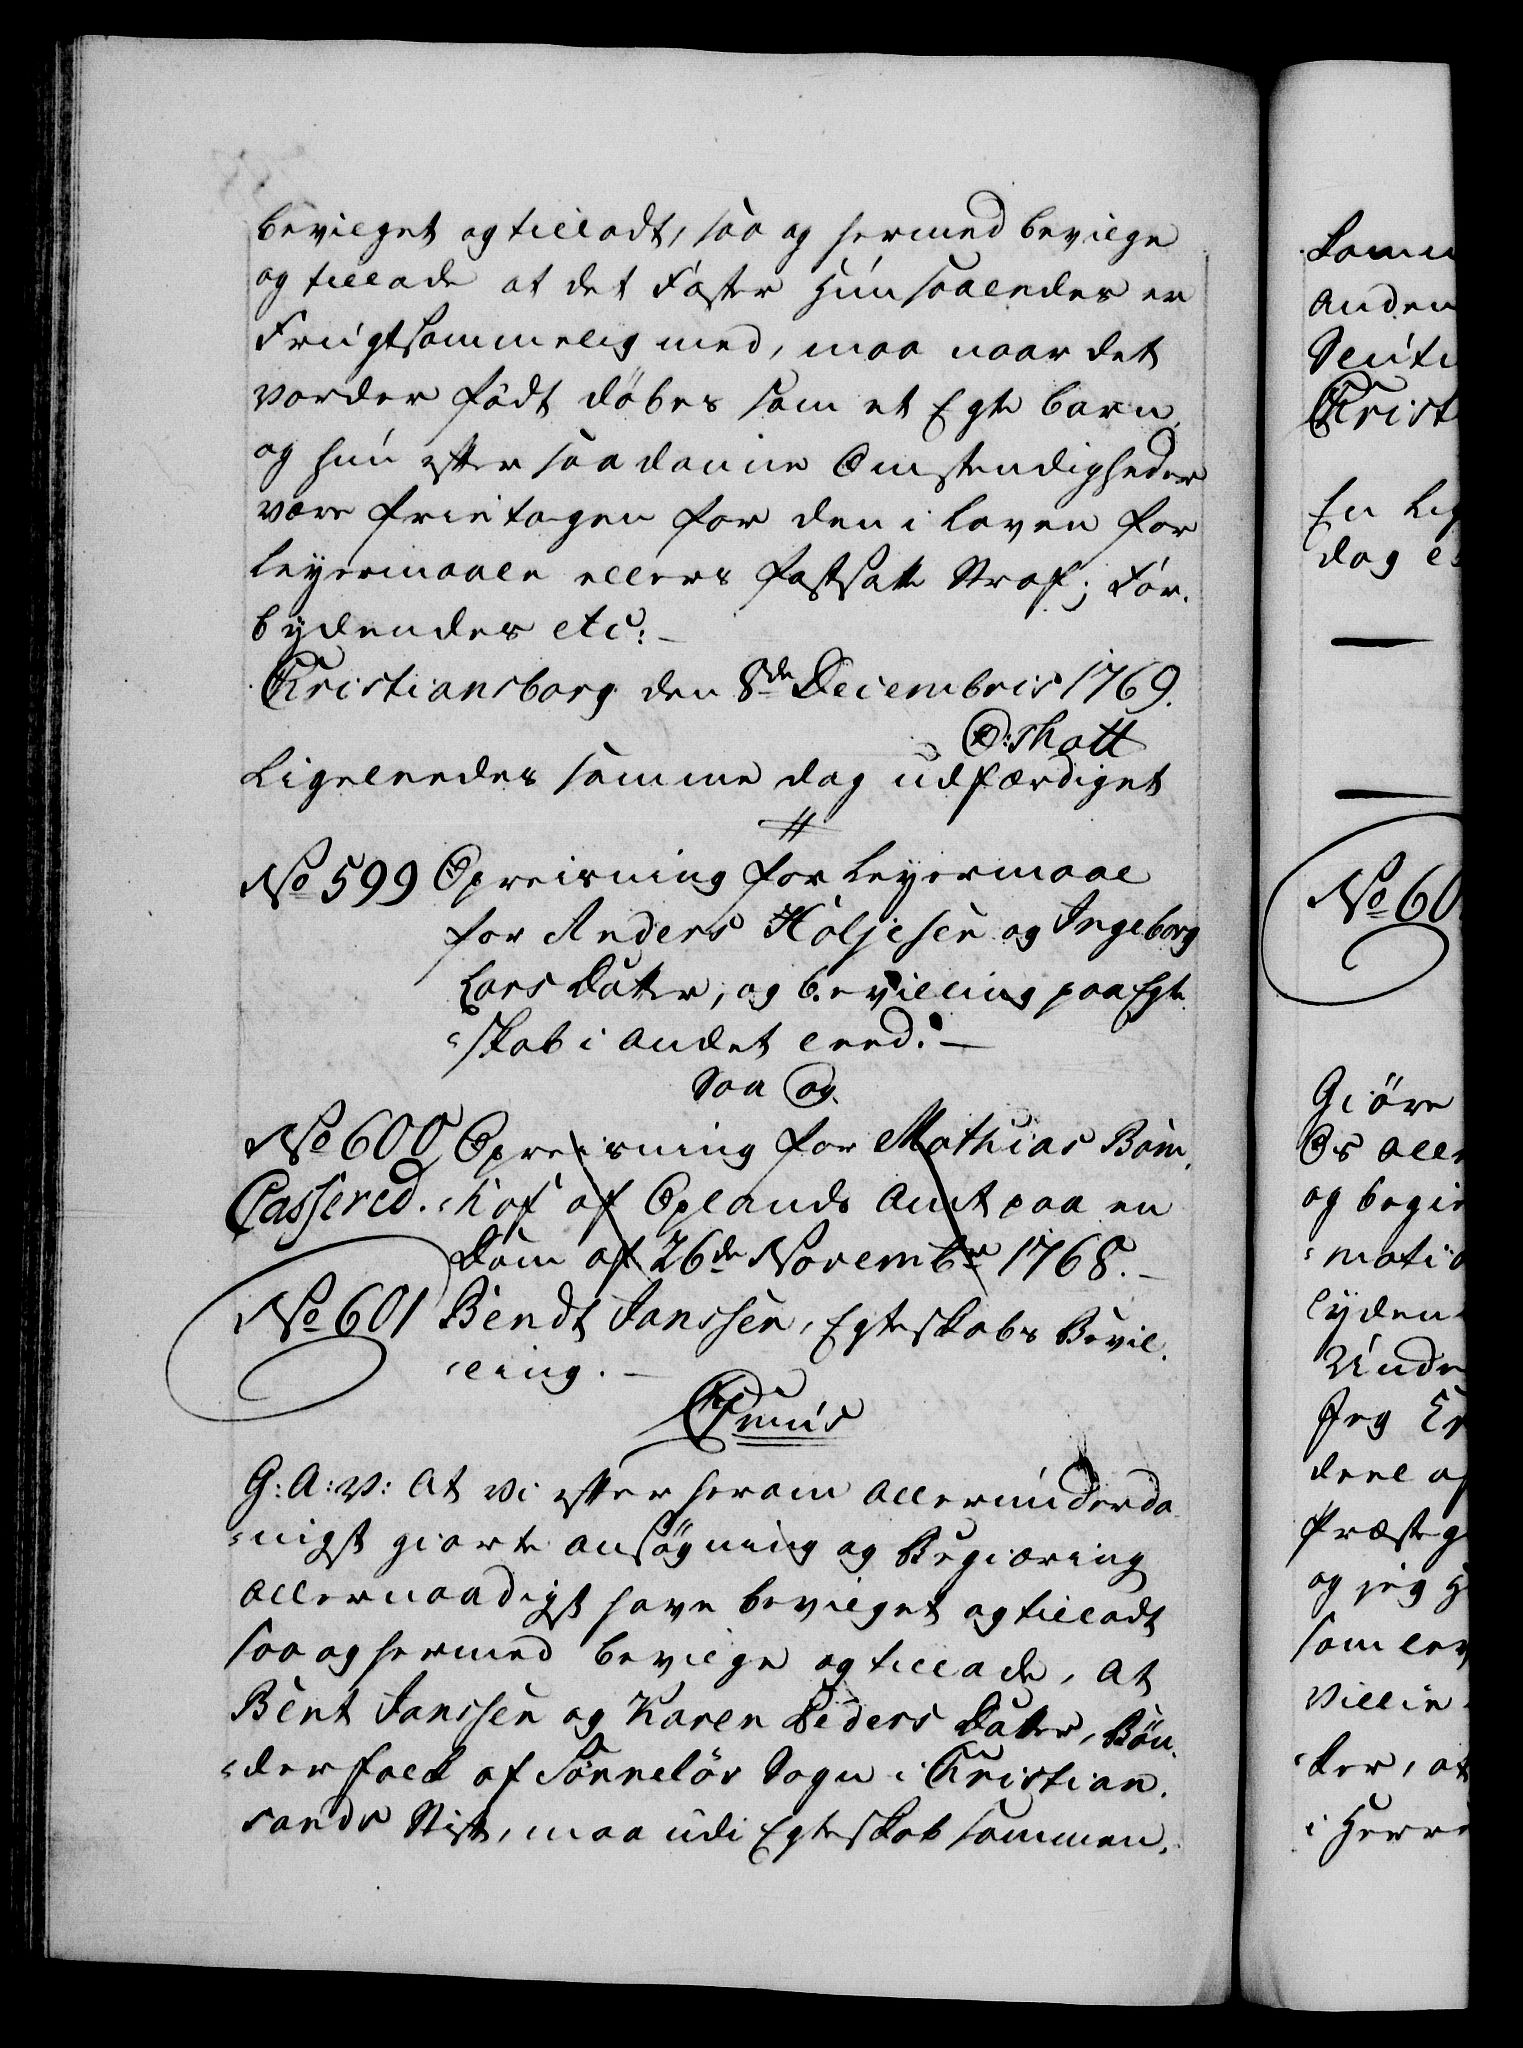 bevilget og tilladt, saa og hermed bevilge
og tillade at det Foster Hun saaledes er
Frugtsommelig med, maa naar det
vorder født døbes som et Egte barn,
og hun efter saadanne Omstendigheder
være frietagen for den i Loven for
Leyermaale ellers fastsatte Straf; For-
bydendes etc: —
Christiansborg den 8de Decembris 1769.
O: Thott
Ligeleedes samme dag udfærdiget
No 599 Opreisning for Leyermaal
for Anders Holjesen og Ingeborg
Lars Datter, og bevilling paa Egte-
-skab i andet leed. —
Saa og.
No 600 Opreisning for Mathias Bom-
Cassered. -hof af Oplands Amt paa en
Dom af 26de Novembr 1768. —
No 601 Bendt Janssen, Egteskabs Bevil-
-ling. —
G: A: V: At Vi efter herom allerunderda-
-nigst giorte ansøgning og Begiæring
allernaadigst have bevilget og tilladt
saa og hermed bevilge og tillade, at
Bent Janssen og Karen Peders Datter, Bøn-
-derfolk af Sønneløs Sogn i Christian-
sands Stift, maa udi Egteskab sammen-
anden
Christ
No 60
Giøre
og begie
lyden
Unde
Jeg
deel af
Præsteg
og jeg
som
i Herre